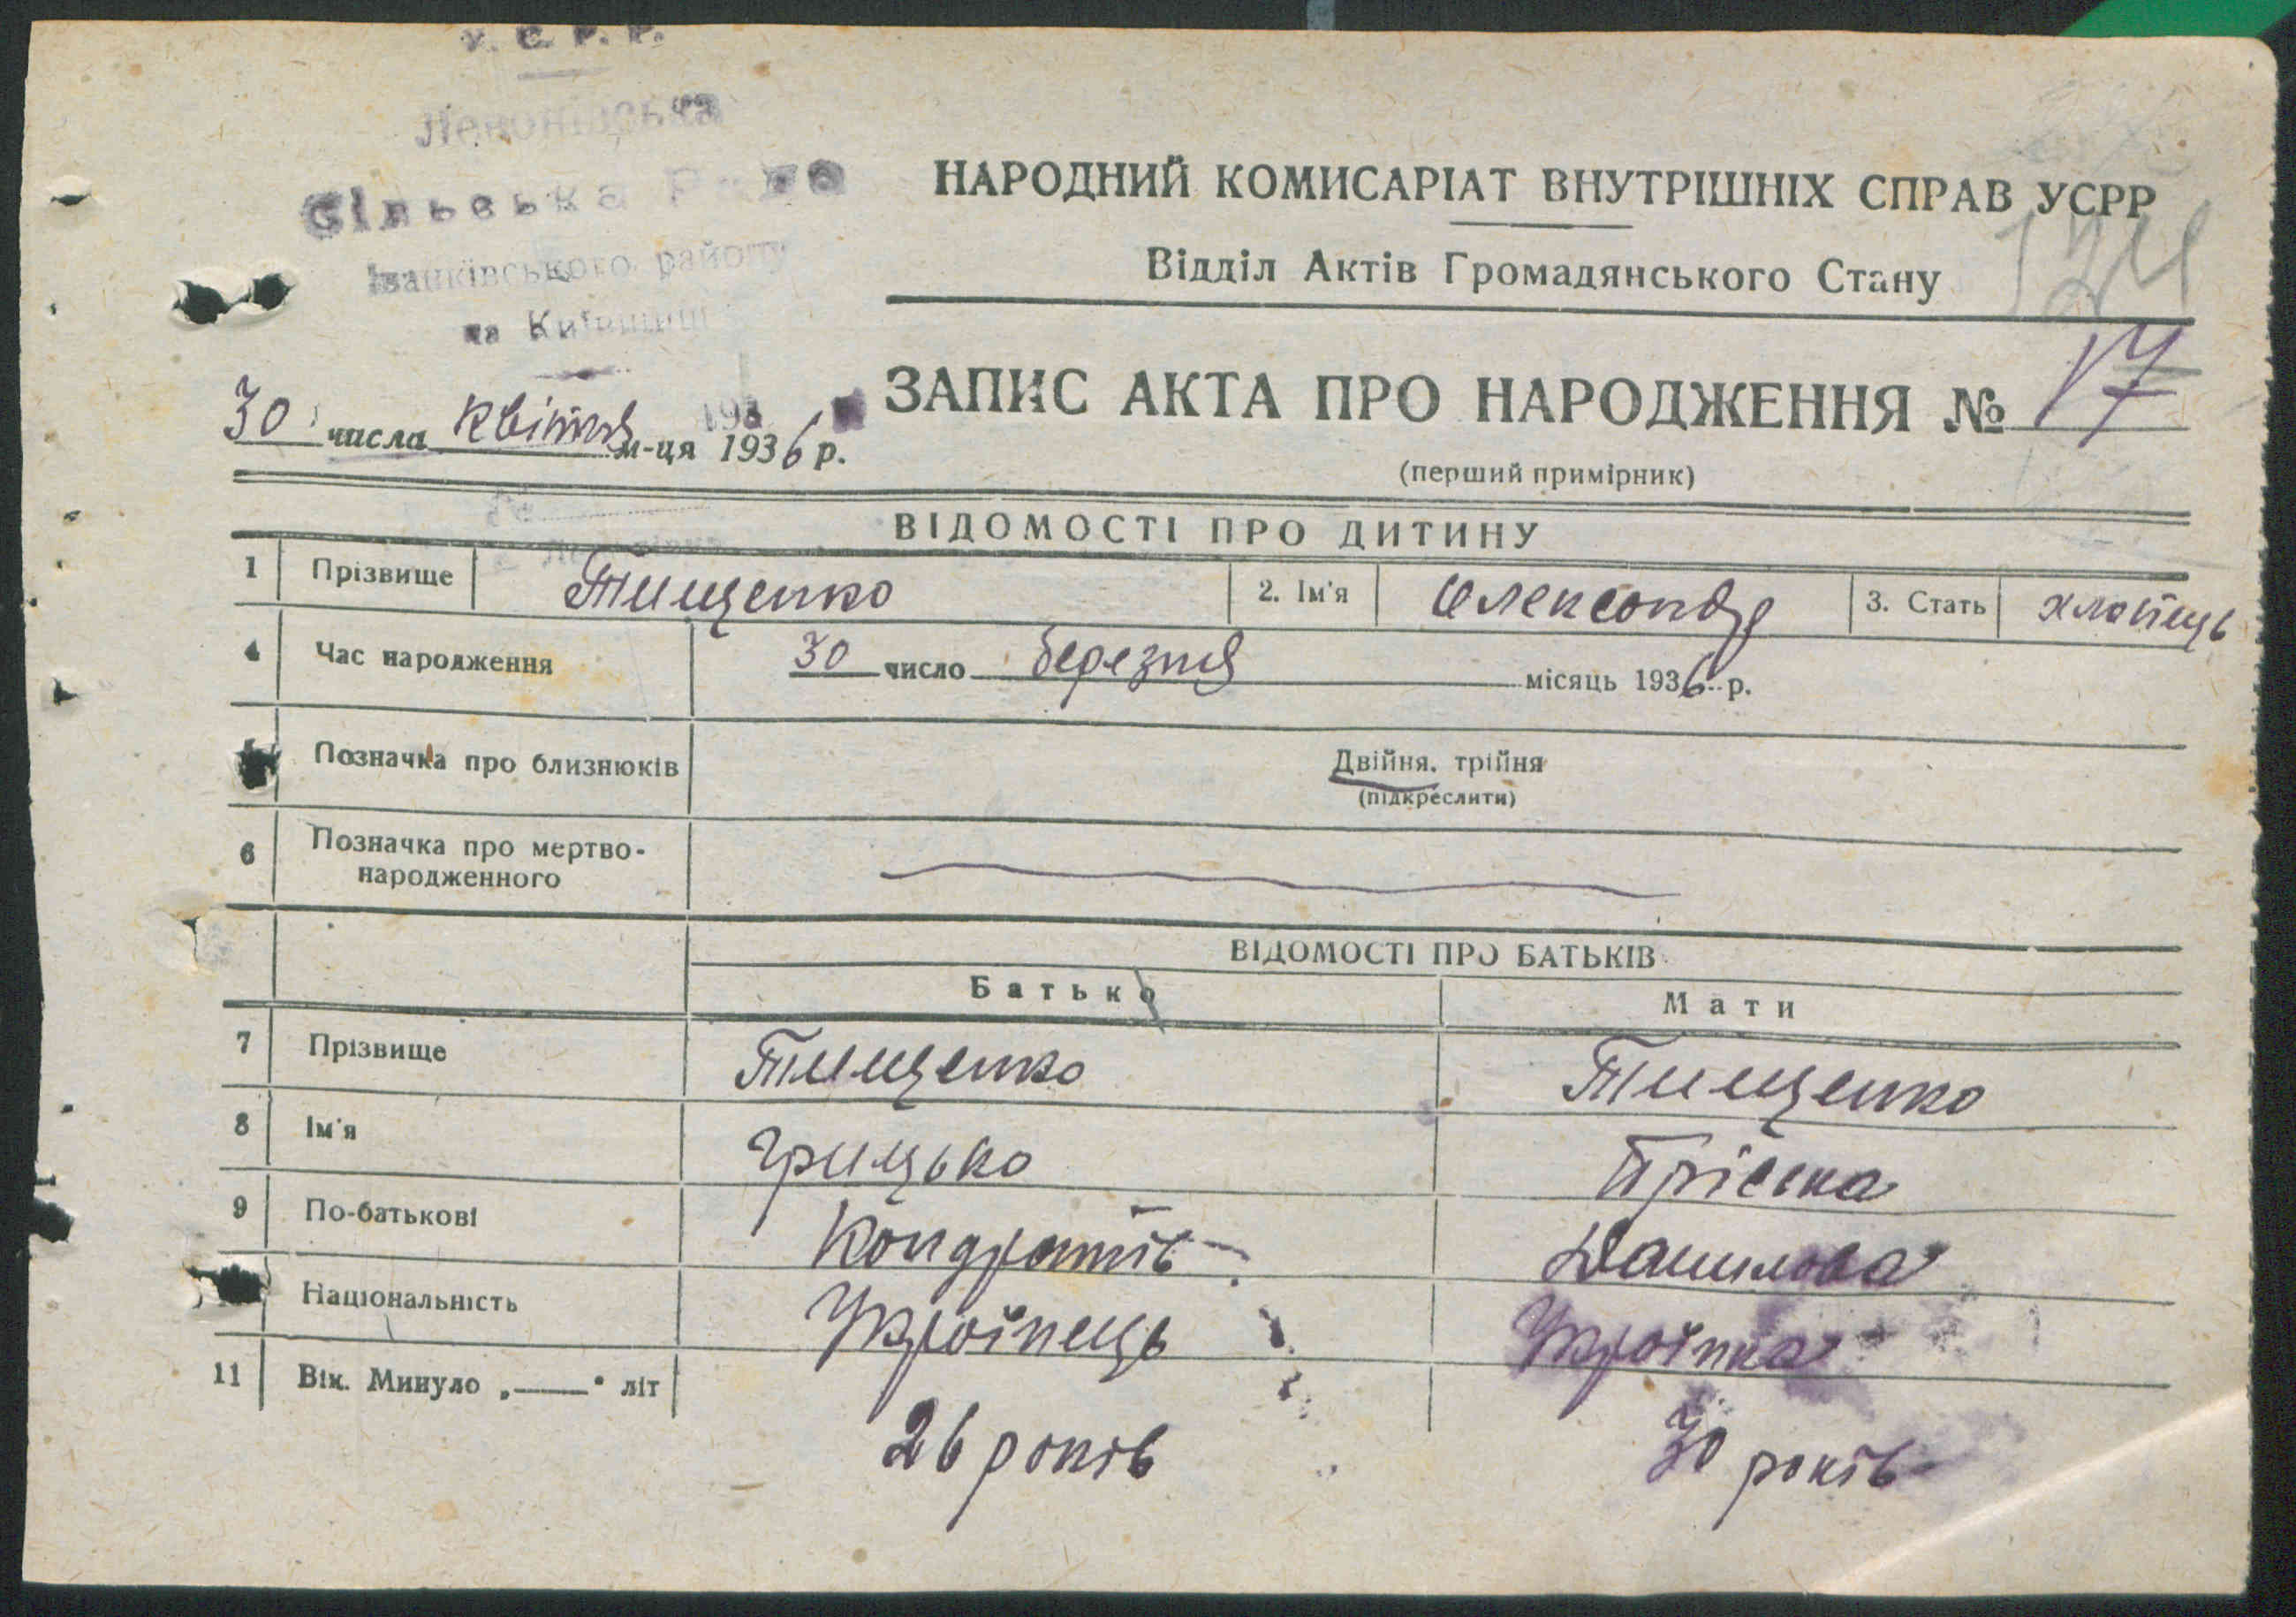 У. С. Р. Р.
Сільська Рада
Іванківського району
на Київщині
НАРОДНИЙ КОМИСАРІАТ ВНУТРІШНІХ СПРАВ УСРР
Відділ Актів Громадянського Стану
124
ЗАПИС АКТА ПРО НАРОДЖЕННЯ № 17
30 числа квітня м-ця 1936 р.
193
(перший примірник)
ВІДОМОСТІ ПРО ДИТИНУ
1 Прізвище Тищенко 2. Ім'я Олександр 3. Стать хлопець
4 Час народження 30 число березня місяць 1936 р.
Позначка про близнюків Двійня, трійня
(підкреслити)
6 Позначка про мертво-
народженного
ВІДОМОСТІ ПРО БАТЬКІВ
Батько Мати
7 Прізвище Тищенко Тищенко
8 Ім'я Грицько Пріська
9 По-батькові Кондратів Данилова
Національність Українець Українка
11 Вік. Минуло „——" літ
26 років 30 років